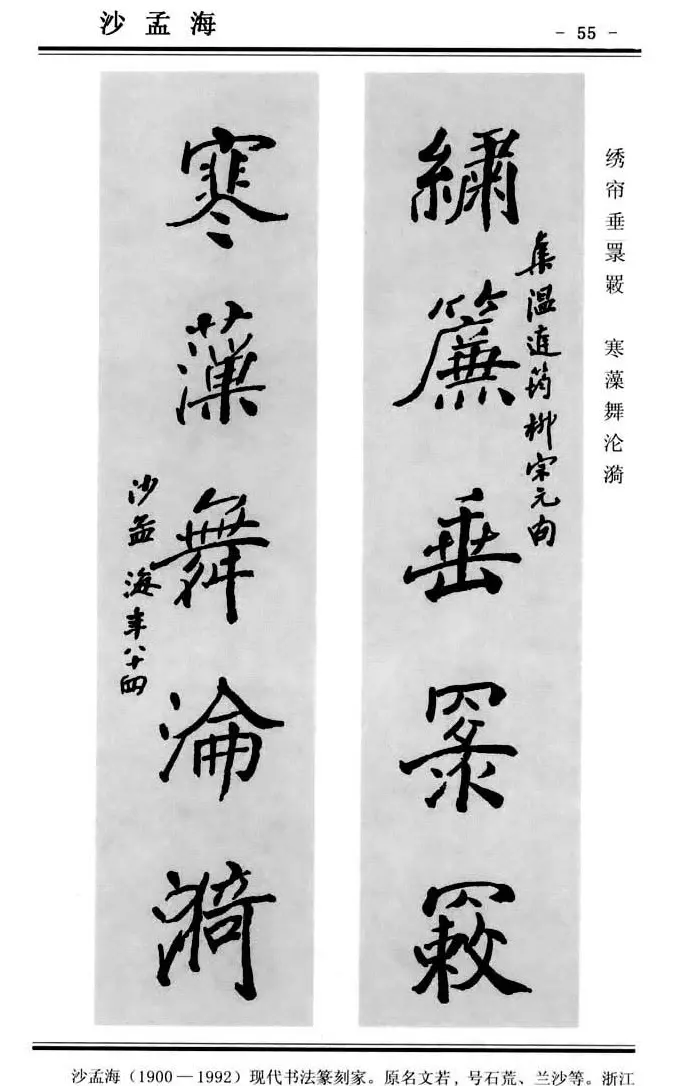 沙孟海
- 55 -
绣帘垂罬簌 寒藻舞沦漪
繡簾垂罬簌
集温庭筠柳宗元句
寒藻舞淪漪
沙孟海年八十四
沙孟海(1900—1992)现代书法篆刻家。原名文若,号石荒、兰沙等。浙江